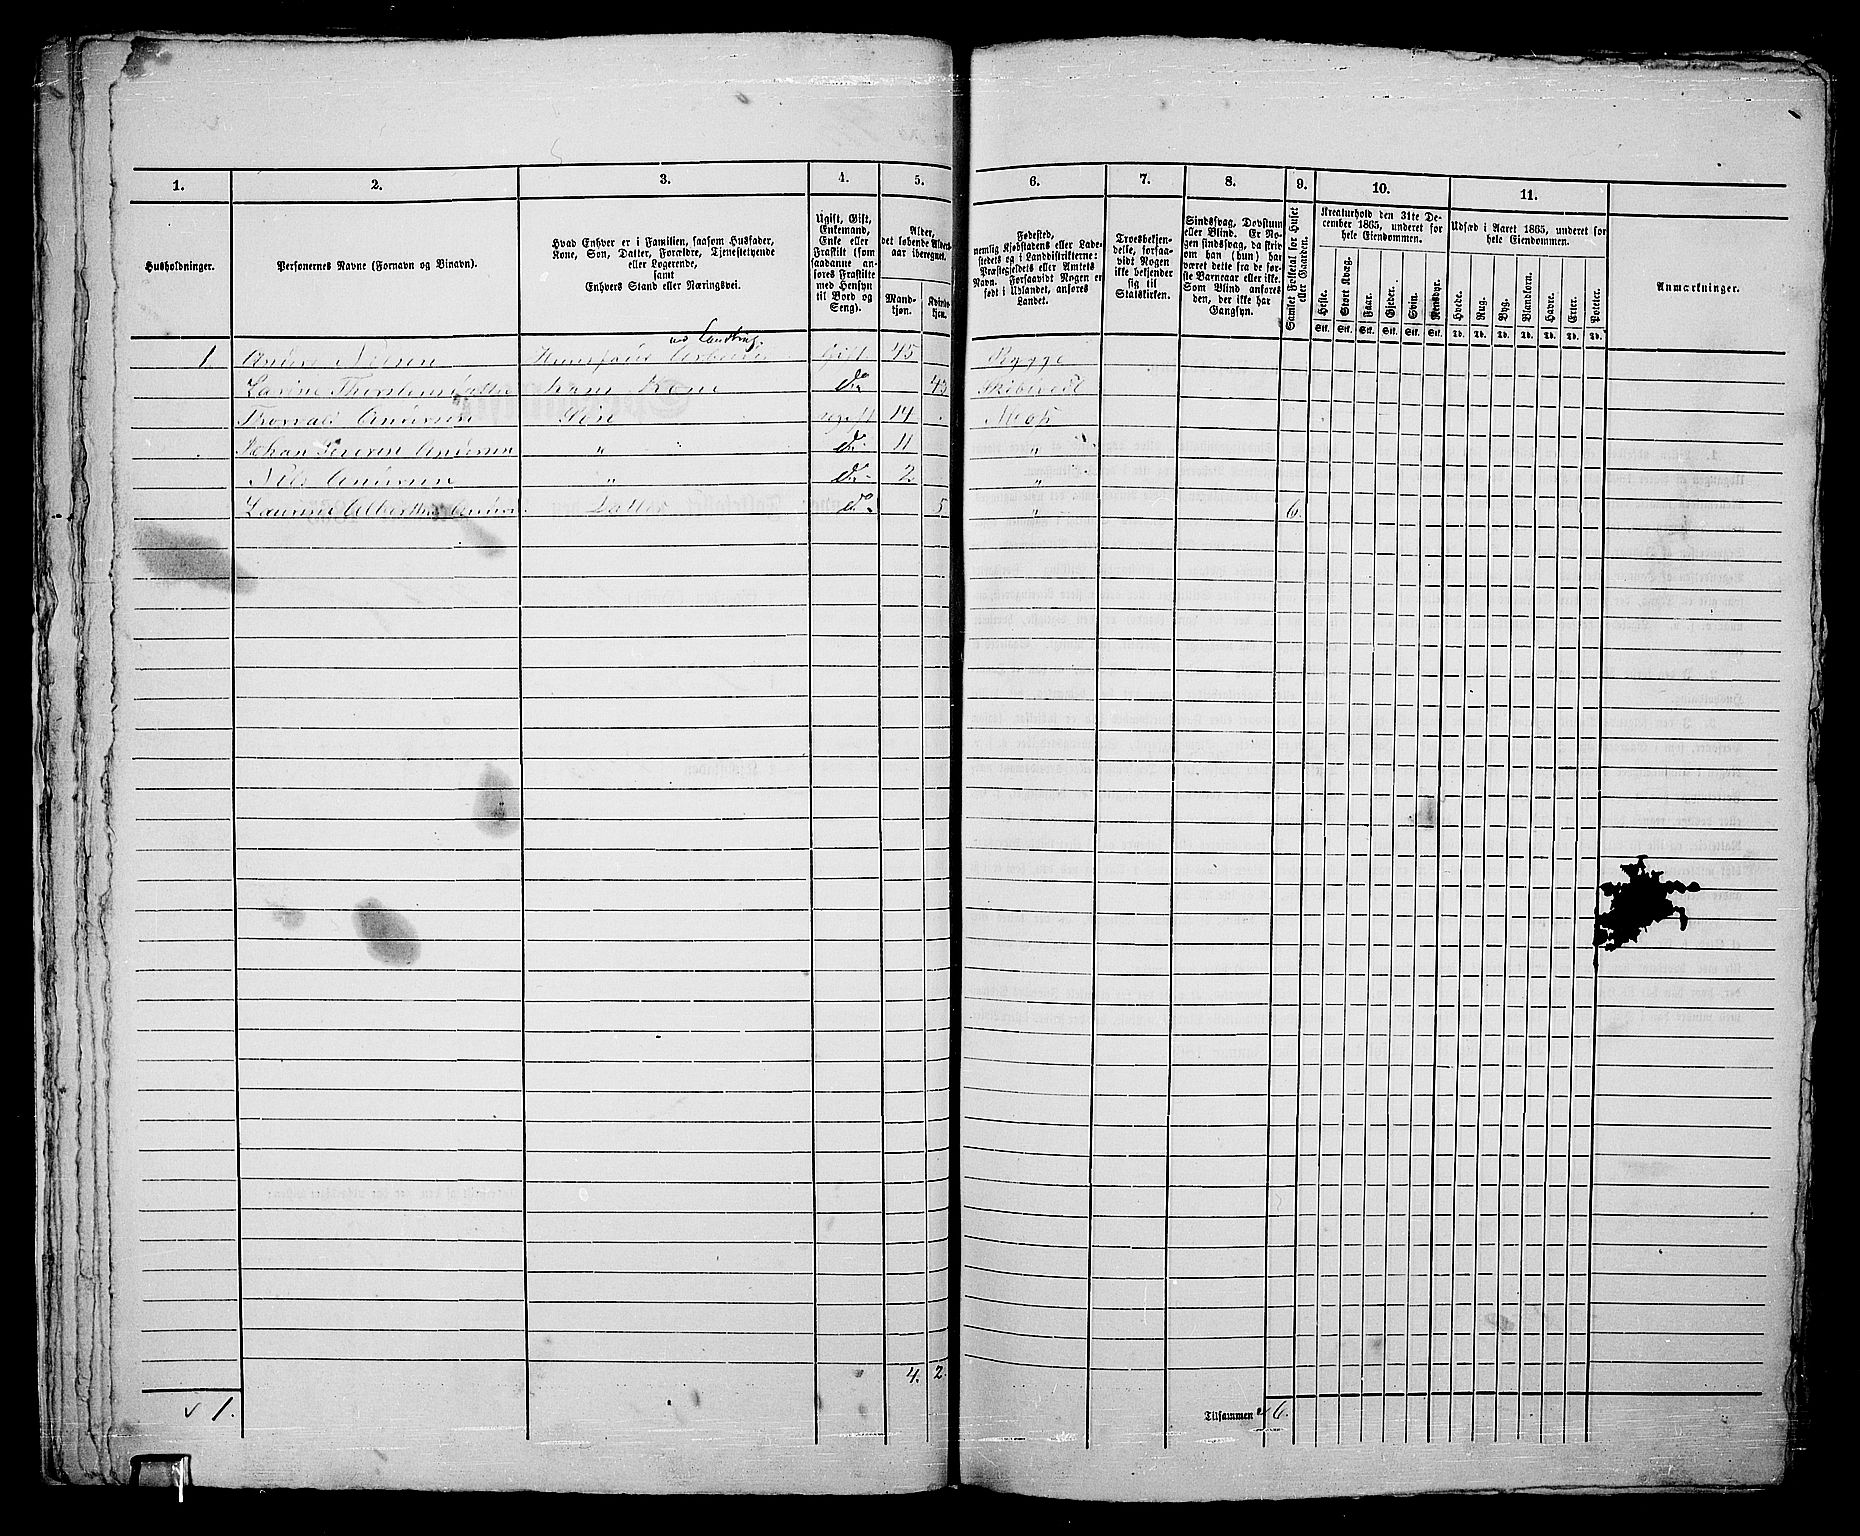 1. 2. 3. 4. 5. 6. 7. 8. 9. 10. 11.
Husholdninger.
Personernes Navne (Fornavn og Binavn).
Hvad Enhver er i Familien, saasom Husfader,
Kone, Søn, Datter, Forældre, Tjenestetyende
eller Logerende,
samt
Enhvers Stand eller Næringsvei.
Ugift, Gift,
Enkemand,
Enke eller
Fraskilt (som
saadanne an-
føres Fraskilte
med Hensyn
til Bord og
Seng).
Alder,
det løbende Alders-
aar iberegnet.
Mand-
kjøn.
Kvinde-
kjøn.
Fødested,
nemlig Kjøbstadens eller Lade-
stedets og i Landdistrikterne:
Præstegjeldets eller Amtets
Navn. Forsaavidt Nogen er
født i Udlandet, anføres
Landet.
Troesbekjen-
delse, forsaa-
vidt Nogen
ikke bekjender
sig til
Statskirken.
Sindssvag, Døvstum
eller Blind. Er No-
gen sindssvag, da skriv
om han (hun) har
været dette fra de før-
ste Barneaar eller ikke.
Som Blind anføres
den, der ikke har
Gangsyn.
Samlet Folketal for Huset
eller Gaarden.
Kreaturhold den 31te De-
cember 1865, underet for
hele Eiendommen.
Heste. Stort Kvæg. Faar. Gjeder. Svin. Rensdyr.
Stk. Stk. Stk. Stk. Stk. Stk.
Udsæd i Aaret 1865, underet for
hele Eiendommen.
Hvede. Rug. Byg. Blandkorn. Havre. Erter. Poteter.
Td. Td. Td. Td. Td. Td. Td.
Anmærkninger.
1. Anders Nilsen Huusfader Arbeider Gift 45 Rygge
Kone do 43
Thorvald Andersen Søn ugift 14 Moss
Johan Andersen " do 11 "
Nils Andersen " do 2 "
Datter do 5 " 6.
4. 2.
1. Tilsammen 6.